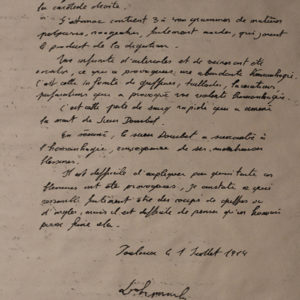 la carotide droite.
L'estomac contient 3 à 400 grammes de matières
rougeâtres, fortement acides, qui sont
le produit de la digestion.
Une infinité d'artérioles et de veines ont été
ce qui a provoqué une abondante hémorragie
C'est cette infinité de griffures,
perforations qui a provoqué une violente hémorragie.
C'est cette perte de sang rapide qui a amené
la mort de
En résumé, le sieur a succombé à
l'hémorragie, conséquence de ses nombreuses
blessures.
Il est difficile d'expliquer par quoi toutes ces
blessures ont été provoquées, je constate ce qui
ressemble fortement à des coups de griffes ou
d'ongles, mais il est difficile de penser qu'un homme
puisse faire cela.
Toulouse le 1 Juillet 1914